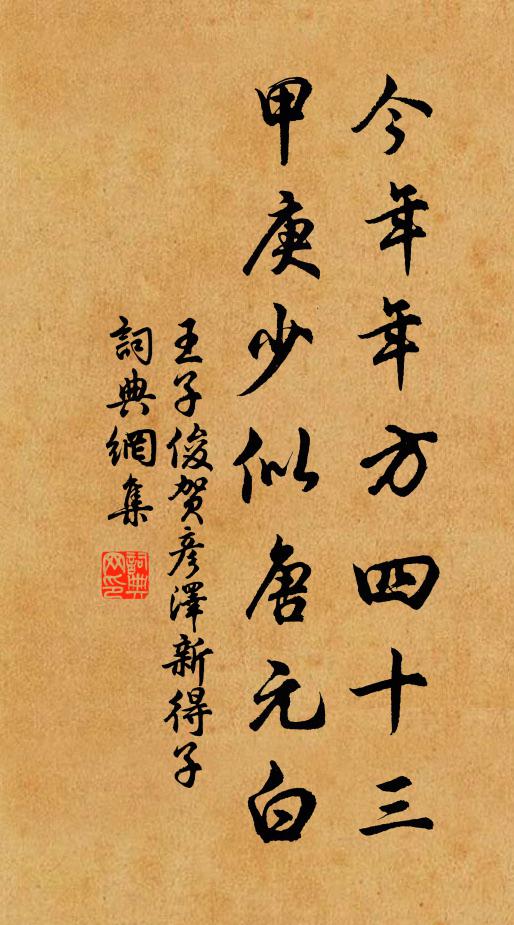 今年年方四十三
甲庚少似唐元白
王子俊贺彦澤新得子
詞典網集
詞典网印